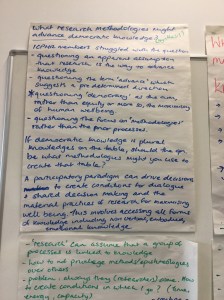 What research methodologies might
advance democratic knowledge?
several members struggled with the question
- questioning an apparent assumption
that research is the way to advance
knowledge.
- questioning the term "advance" which
suggests a pre-determined direction.
questioning "democracy" as the aim,
rather than equity or more so, the maximising
of human wellbeing.
- questioning the focus on "methodologies"
rather than the prior processes.
If democratic knowledge is plural
knowledges on the table, should the qn
be what methodologies might you use to
create that table?
A participatory paradigm can drive decisions
to create conditions for dialogue
& shared decision making and the
material practices of research for maximising
well being. This involves accessing all forms
of knowledge including non-textual, embodied,
emotional knowledge.
- 'research' can assume that a group of
processes is linked to knowledge
- how to not privilege methods/epistemologies
over others
- problem among many
create conditions in which
energy, capacity)